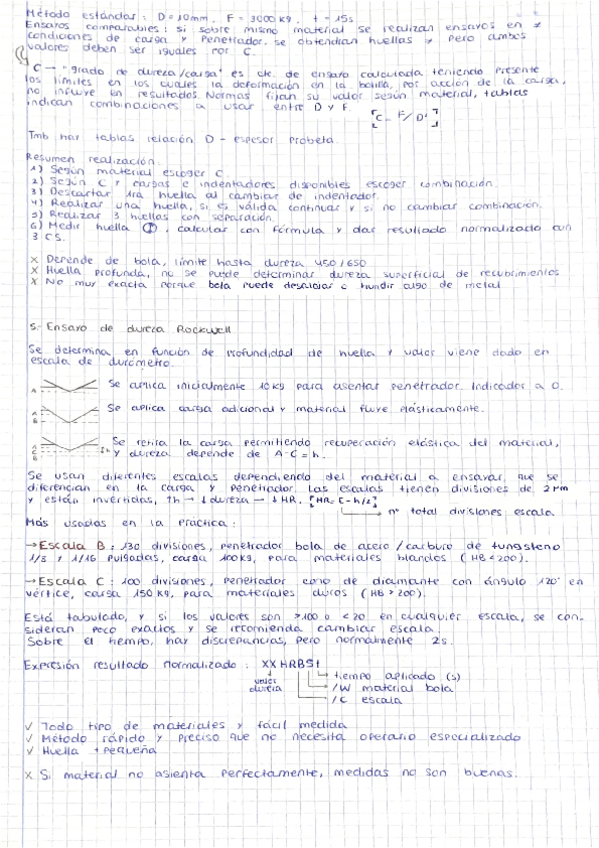 Método estándar: D=10mm, F=3000kg, t=15s
Ensayos comparables: si sobre mismo material se realizan ensayos en ≠
condiciones de carga y penetrador, se obtendrían huellas ≠ pero ambos
valores deben ser iguales por C.
C → "grado de dureza/carga" es cte. de ensayo calculada teniendo presente
los límites en los cuales la deformación en la bolilla, por acción de la carga,
no influye en resultados. Normas fijan su valor según material, tablas
indican combinaciones a usar entre D y F [C= F/D²]
Tmb hay tablas relación D - espesor probeta.
Resumen realización:
1) Según material escoger C
2) Según C y cargas e indentadores disponibles escoger combinación.
3) Descartar 1ra huella al cambiar de indentador.
4) Realizar una huella, si es válida continuar y si no cambiar combinación.
5) Realizar 3 huellas con separación.
6) Medir huella, calcular con fórmula y dar resultado normalizado con
3 CS.
x Depende de bola, límite hasta dureza 450/650
x Huella profunda, no se puede determinar dureza superficial de recubrimientos
x No muy exacta porque bola puede desalojar o hundir algo de metal
5- Ensayo de dureza Rockwell
Se determina en función de profundidad de huella y valor viene dado en
escala de durómetro.
A
Se aplica inicialmente 10kg para asentar penetrador. Indicador a 0.
A
B
Se aplica carga adicional y material fluye plásticamente.
A
C
B
h
Se retira la carga permitiendo recuperación elástica del material,
y dureza depende de A-C=h.
Se usan diferentes escalas dependiendo del material a ensayar, que se
diferencian en la carga y penetrador. Las escalas tienen divisiones de 2μm
y están invertidas, ↑h → ↓dureza → ↓HR. [HR= E - h/2]
→ nº total divisiones escala
Más usadas en la práctica:
→ Escala B: 130 divisiones, penetrador bola de acero/carburo de tungsteno
1/8 y 1/16 pulgadas, carga 100kg, para materiales blandos (HB<200).
→ Escala C: 100 divisiones, penetrador cono de diamante con ángulo 120° en
vértice, carga 150kg, para materiales duros (HB>200).
Está tabulado, y si los valores son >100 o <20 en cualquier escala, se con-
sideran poco exactos y se recomienda cambiar escala.
Sobre el tiempo, hay discrepancias, pero normalmente 2s.
Expresión resultado normalizado: XX HRBSt
→ tiempo aplicado (s)
valor
dureza
→ /W material bola
→ /C escala
✓ Todo tipo de materiales y fácil medida
✓ Método rápido y preciso que no necesita operario especializado
✓ Huella + pequeña
x Si material no asienta perfectamente, medidas no son buenas.